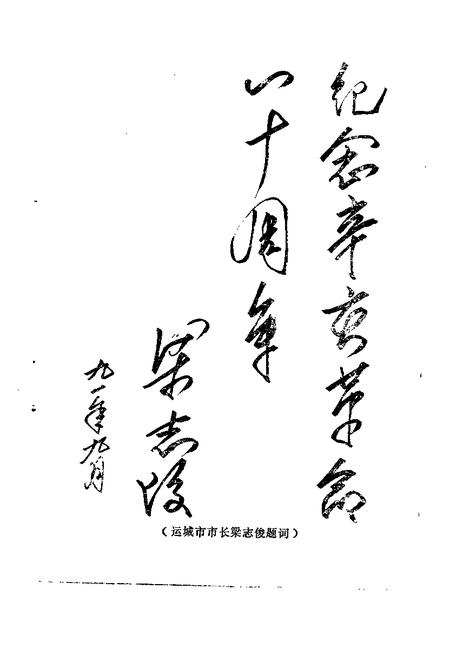 纪念辛亥革命
八十周年
梁志俊
九一年九月
（运城市市长梁志俊题词）